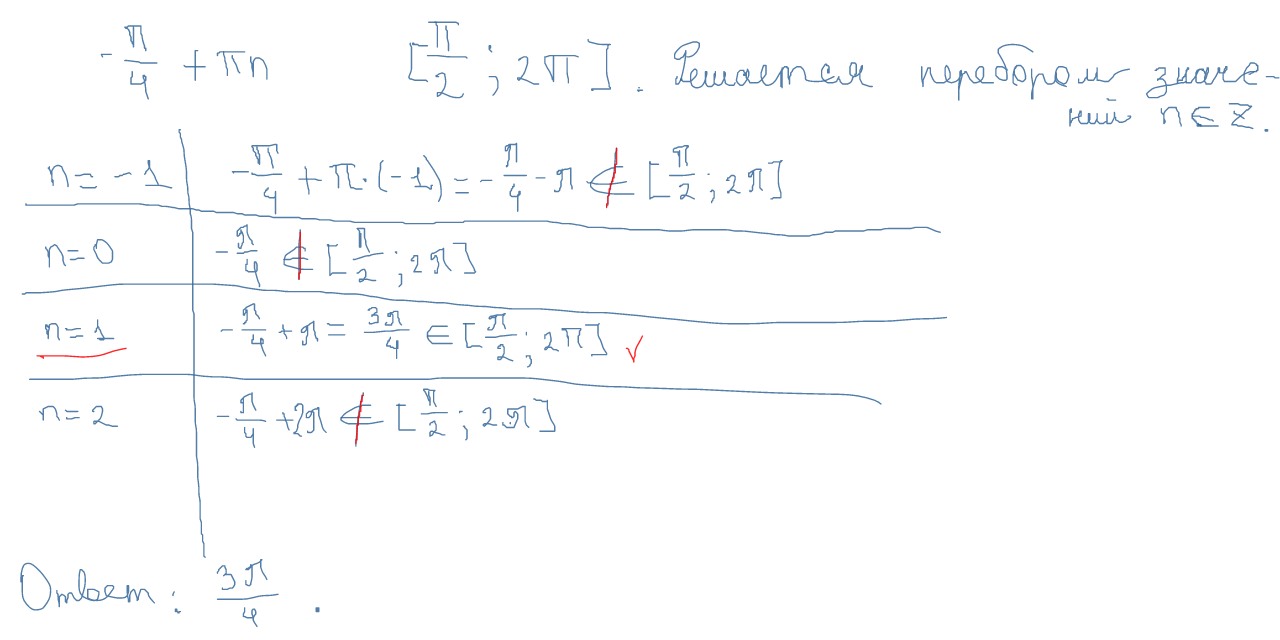 -π/4 + πn [π/2 ; 2π]. Решается перебором значе-
ний n∈Z.
n = -1 -π/4 + π·(-1) = -π/4 - π ∉ [π/2 ; 2π]
n=0 -π/4 ∉ [π/2 ; 2π]
n=1 -π/4 + π = 3π/4 ∈ [π/2 ; 2π] √
n=2 -π/4 + 2π ∉ [π/2 ; 2π]
Ответ: 3π/4.